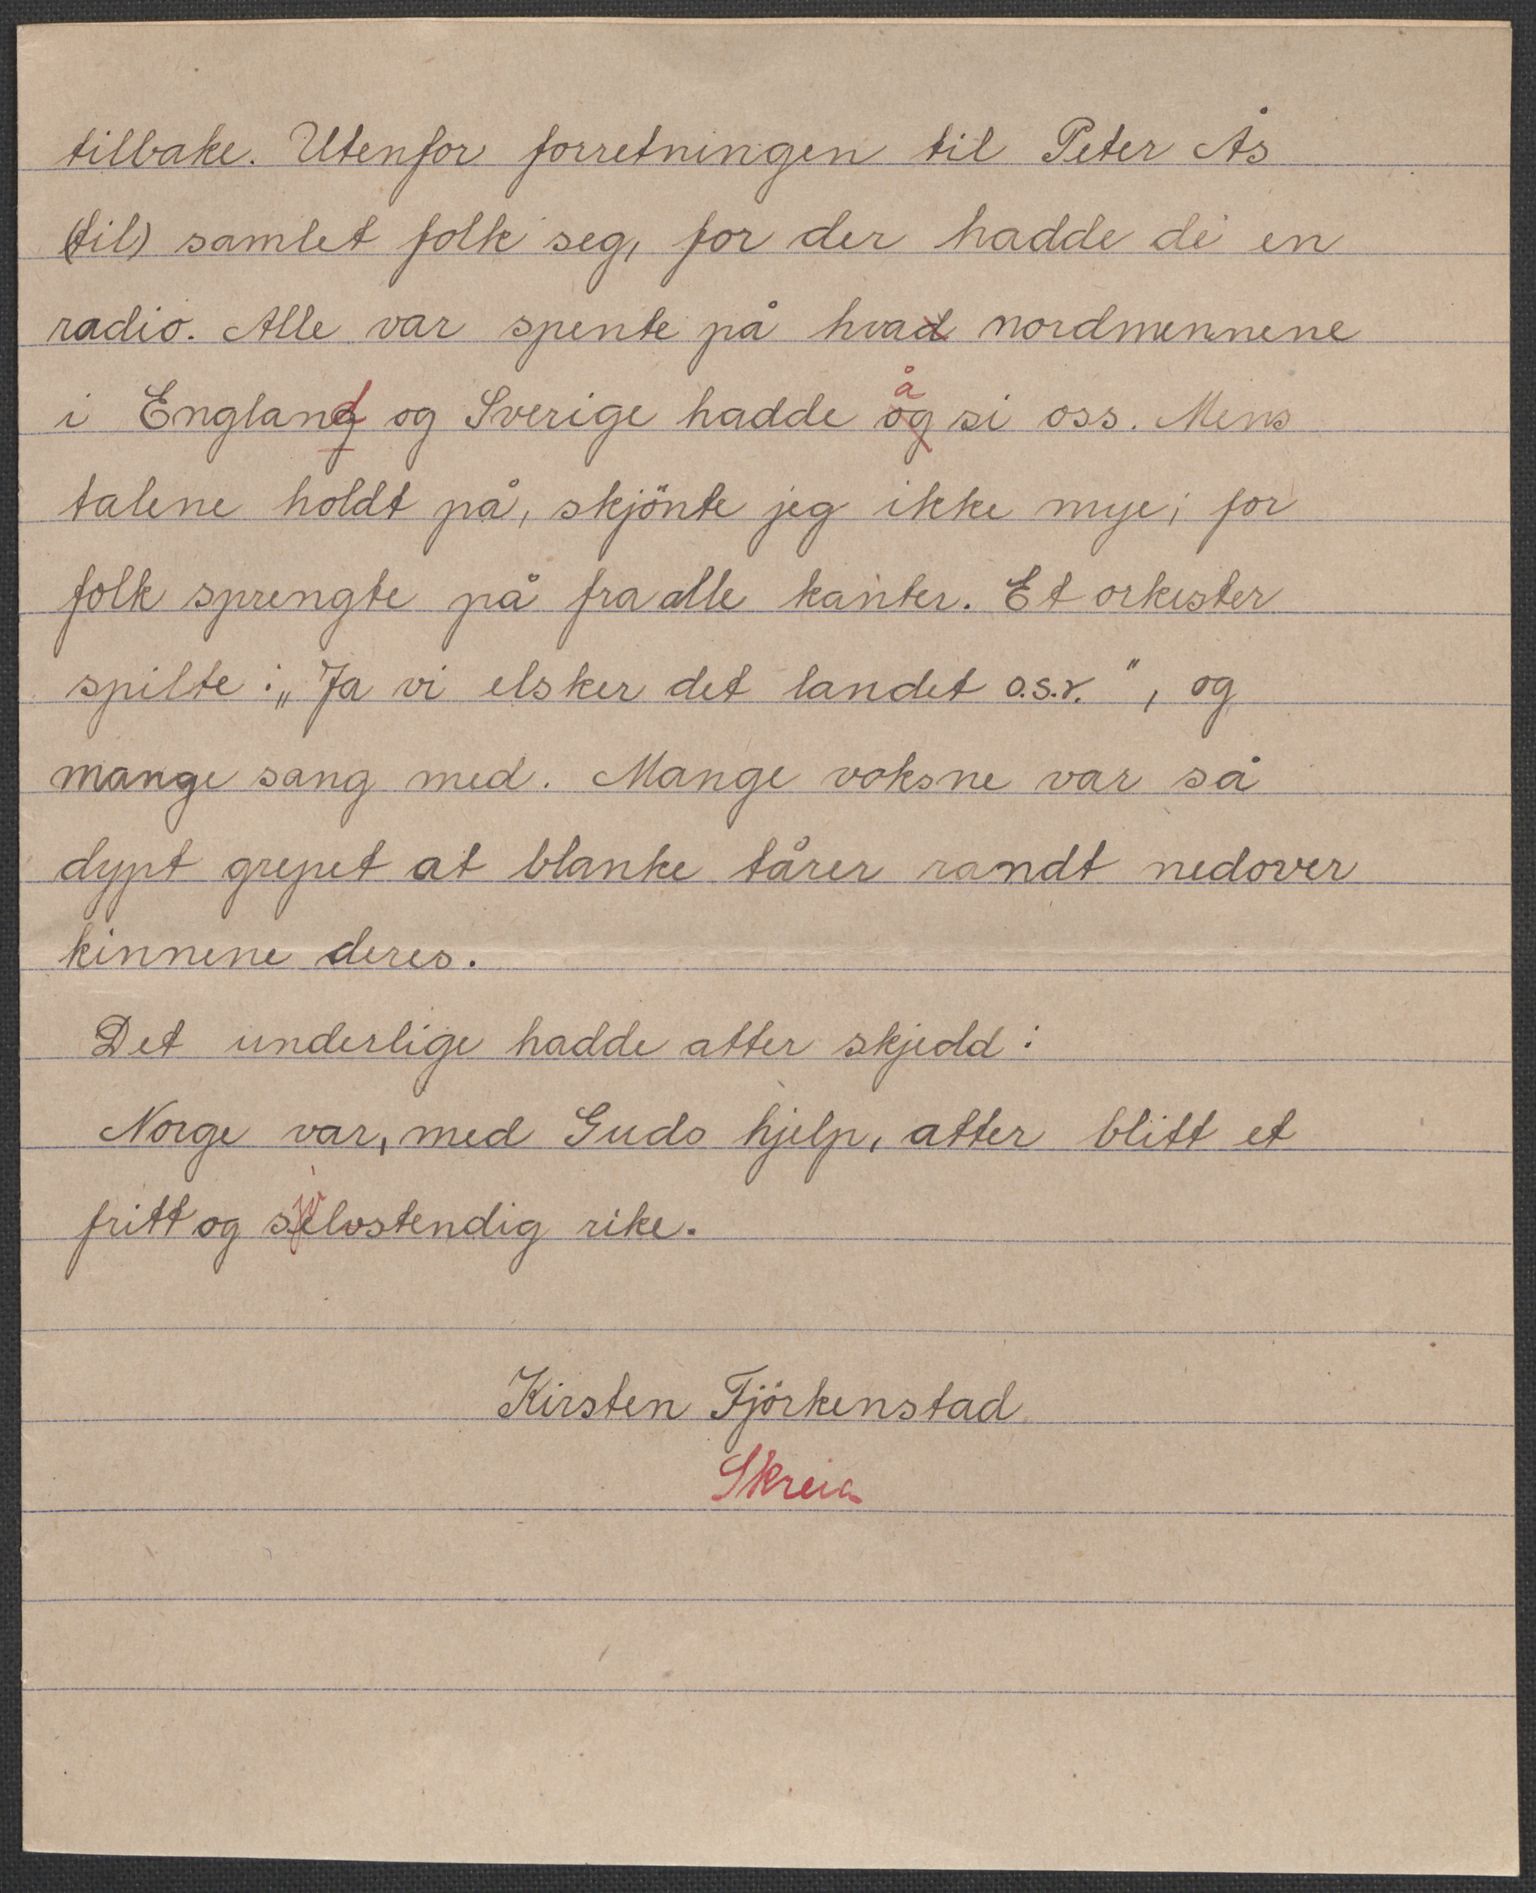 tilbake. Utenfor forretningen til Peter Ås
(til) samlet folk seg, for der hadde de en
radio. Alle var spente på hvad nordmennene
i England og Sverige hadde og å si oss. Mens
talene holdt på, skjönte jeg ikke mye; for
folk sprengte på fra alle kanter. Et orkester
spilte: „Ja vi elsker det landet o.s.v.", og
mange sang med. Mange voksne var så
dypt grepet at blanke tårer randt nedover
kinnene deres.
Det underlige hadde atter skjedd:
Norge var, med Guds hjelp, atter blitt et
fritt og selvstendig rike.
Kirsten Fjörkenstad
Skreia